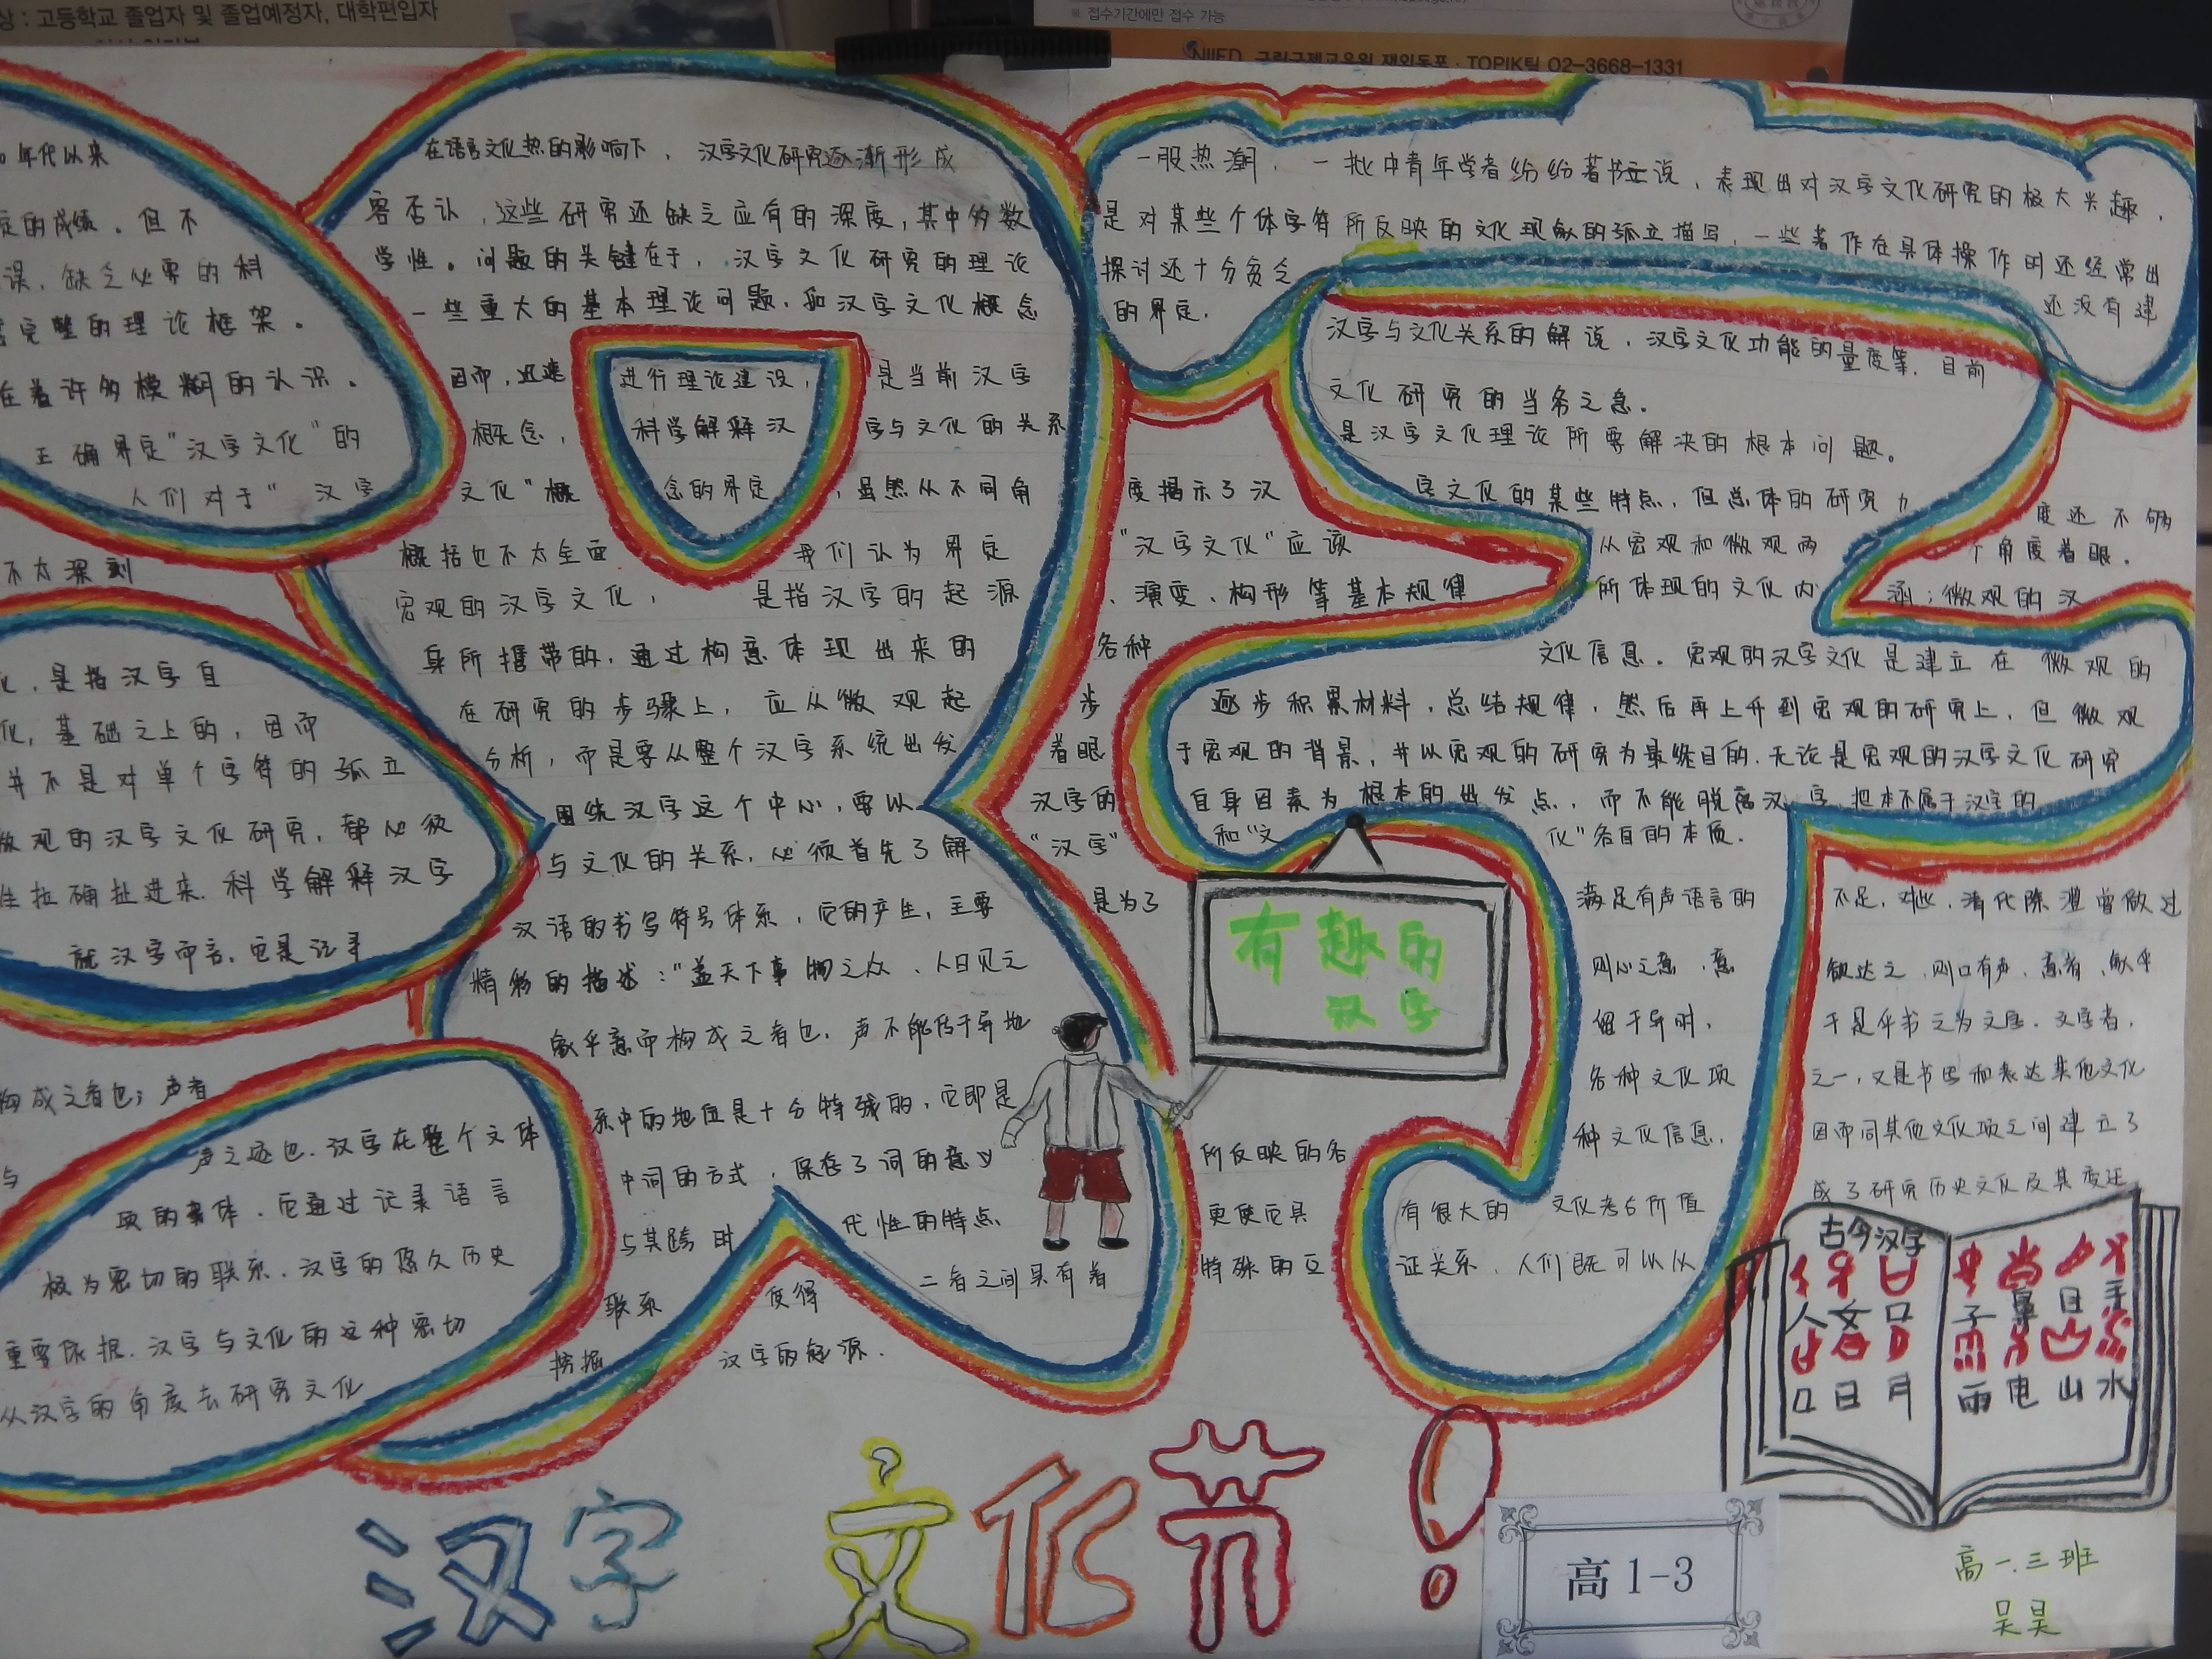 상 : 고등학교 졸업자 및 졸업예정자, 대학편입자
※ 접수기간에만 접수 가능
NIIED 국립국제교육원 재외동포 · TOPIK팀 02-3668-1331
年代以来 在语言文化热的影响下， 汉字文化研究逐渐形成 一股热潮， 一批中青年学者纷纷著书立说，表现出对汉字文化研究的极大兴趣，
定的成绩。但不 容否认，这些研究还缺乏应有的深度，其中多数 是对某些个体字符所反映的文化现象的孤立描写，一些著作在具体操作时还经常出
误，缺乏必要的科 学性。问题的关键在于，汉字文化研究的理论 探讨还十分贫乏 还没有建
完整的理论框架。 一些重大的基本理论问题，如汉字文化概念 的界定， 汉字与文化关系的解说，汉字文化功能的量度等，目前
在着许多模糊的认识。 因而，迅速 进行理论建设， 是当前汉字 文化研究的当务之急。
正确界定"汉字文化"的 概念， 科学解释汉 字与文化的关系 是汉字文化理论所要解决的根本问题。
人们对于" 汉字 文化"概 念的界定 ，虽然从不同角 度揭示了汉 字文化的某些特点，但总体的研究力 度还不够
不太深刻 概括也不太全面 我们认为界定 "汉字文化"应该 从宏观和微观两 个角度着眼。
宏观的汉字文化， 是指汉字的起源 、演变、构形等基本规律 所体现的文化内 涵；微观的汉
化，是指汉字自 身所携带的，通过构意体现出来的 各种 文化信息。宏观的汉字文化是建立在微观的
化，基础之上的，因而 在研究的步骤上，应从微观起 步 逐步积累材料，总结规律，然后再上升到宏观的研究上，但微观
并不是对单个字符的孤立 分析，而是要从整个汉字系统出发 着眼 于宏观的背景，并以宏观的研究为最终目的，无论是宏观的汉字文化研究
微观的汉字文化研究，都必须 围绕汉字这个中心，要以 汉字的 自身因素为根本的出发点，而不能脱离汉字，把本不属于汉字的
拉确扯进来，科学解释汉字 与文化的关系，必须首先了解 "汉字" 和"文 化"各自的本质。
就汉字而言，它是记录 汉语的书写符号体系，它的产生，主要 是为了 满足有声语言的 不足，对此，清代陈澧曾做过
精彩的描述："盖天下事物之众，人目见之 则心之意，意 欲达之，则口有声，意者，象乎
构成之者也；声者 象乎意而构成之者也，声不能传于异地 留于异时， 于是乎书之为文字，文字者，
声之迹也，汉字在整个文体 系中的地位是十分特殊的，它即是 各种文化项 之一，又是书写和表达其他文化
项的载体，它通过记录语言 中词的方式，保存了词的意义 与 所反映的各 种文化信息， 因而同其他文化项之间建立了
极为密切的联系，汉字的悠久历史 与其跨时 代性的特点 更使它具 有很大的 文化考古价值 成了研究历史文化及其变迁
重要依据，汉字与文化的这种密切 联系 使得 二者之间具有着 特殊的互 证关系，人们既可以从
从汉字的角度去研究文化 挖掘 汉字的起源．
有趣的
汉字
古今汉字
人 女 口 子 鼻 目 手
口 日 月 雨 电 山 水
汉字 文化节！
高 1-3
高一.三班
吴昊